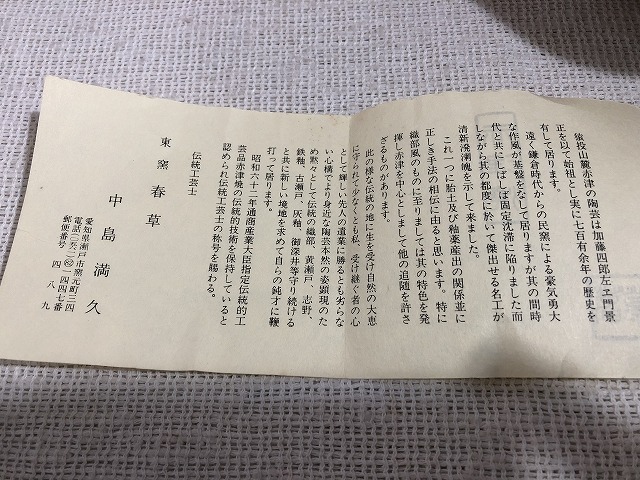 猿投山麓赤津の陶芸は加藤四郎左ヱ門景
正を以て始祖とし実に七百有余年の歴史を
有して居ります。
遠く鎌倉時代からの民窯による豪気勇大
な作風が基盤をなして居りますが其の間時
代と共にしばしば固定沈滞に陥りました而
しながら其の都度に於いて傑出せる名工が
清新溌溂魄を示して来ました。
これ一つに胎土及び釉薬産出の関係並に
正しき手法の相伝に由ると思います。特に
織部風のものに至りましては其の特色を発
揮し赤津を中心としまして他の追随を許さ
ざるものがあります。
此の様な伝統の地に生を受け自然の大恵
に守られて少なくとも私、受け継ぐ者の心
として輝しい先人の遺業に勝るとも劣らな
い心構でより身近な陶芸本然の姿顕現のた
め黙々として伝統の織部、黄瀬戸、志野、
鉄釉、古瀬戸、灰釉、御深井等守り続ける
と共に新しい境地を求めて自らの鈍才に鞭
打って居ります。
昭和六十二年通商産業大臣指定伝統的工
芸品赤津焼の伝統的技術を保持していると
認められ伝統工芸士の称号を賜わる。
伝統工芸士
東窯春草
中島満久
愛知県瀬戸市窯元町三四
電話(〇五六一)八二一四四七番
郵便番号 四八九